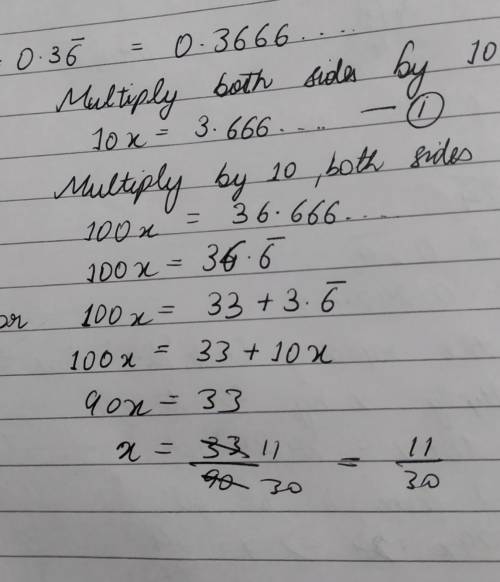 0.36̅ = 0.3666....
Multiply both sides by 10
10x = 3.666.... — ①
Multiply by 10, both sides
100x = 36.666....
100x = 36.6̅
or 100x = 33 + 3.6̅
100x = 33 + 10x
90x = 33
x = 33 11 / 90 30 = 11/30